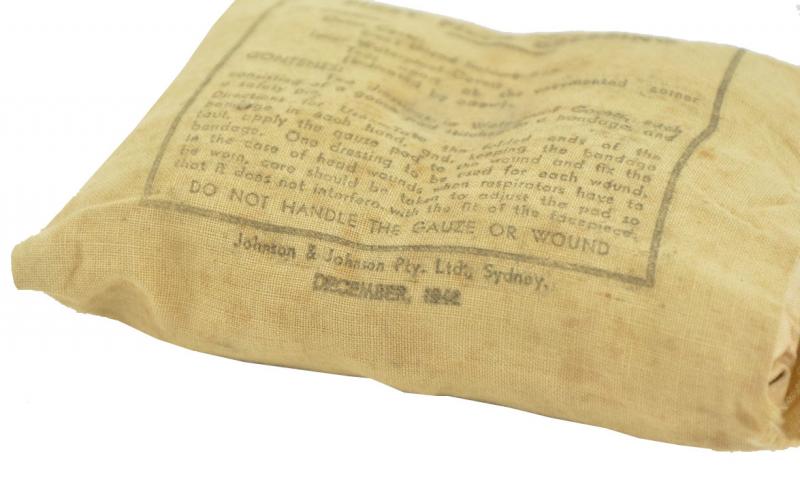 Outer Cover
Inner Waterproof Cover
(indented by open).
CONTENTS: Two dressings in Waterproof Covers, each
consisting of a gauze pad stitched to a bandage, and
a safety pin.
Directions for Use: Take the folded ends of the
bandage in each hand, and, keeping the bandage
taut, apply the gauze pad to the wound and fix the
bandage. One dressing to be used for each wound.
In the case of head wounds, when respirators have to
be worn, care should be taken to adjust the pad so
that it does not interfere with the fit of the facepiece.
DO NOT HANDLE THE GAUZE OR WOUND
Johnson & Johnson Pty. Ltd., Sydney.
DECEMBER, 1942